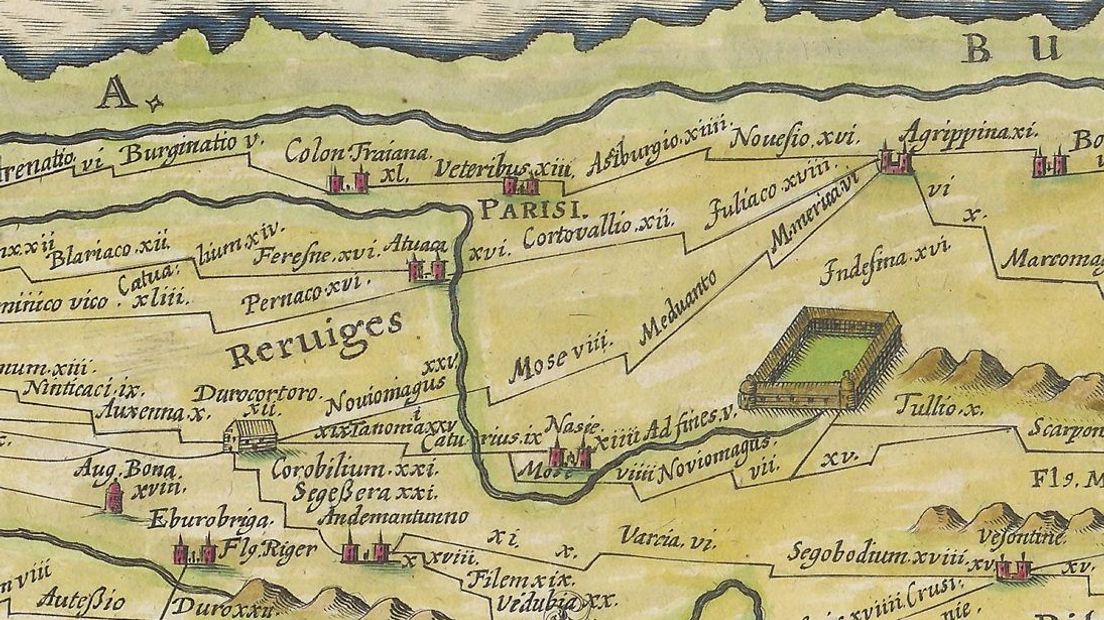 B U
A.
Burginatio v.
vi
Colon. Traiana.
xl.
Veteribus xiii
Asiburgio. xiiii.
Nouesio. xvi.
Agrippina xi.
Bo
PARISI.
Cortovallio. xii.
Juliaco xviii.
M.merica. vi
vi
x.
Marcomag
Blariaco. xii.
Catua: lium. xiv.
Feresne. xvi.
Atuaca
xvi.
Indesina. xvi
minico vico. xliii.
Pernaco. xvi.
Reruiges
Mose viii.
Meduanto
num. xiii.
Ninticaci. ix.
Auxenna. x.
Durocortoro.
xii.
Noviomagus
xxv
xix Tanomia xxv
Catu rius. ix
Nasie.
xiiii Ad fines. v.
Tullio. x.
Scarpon
Mose
viiii Noviomagus.
vii.
xv.
Fl9. M
Aug. Bona.
xviii.
Corobilium. xxi.
Segeßera xxi.
Eburobriga.
Andemantunno
Fl9. Riger
x xviii.
xi.
x.
Varcia. vi.
Segobodium. xviii.
Vesontine.
xv.
xv.
Filem xix.
Vidubia xx.
n viii
Auteßio
Duro xxii.
xviiii. Crusi.
nie.